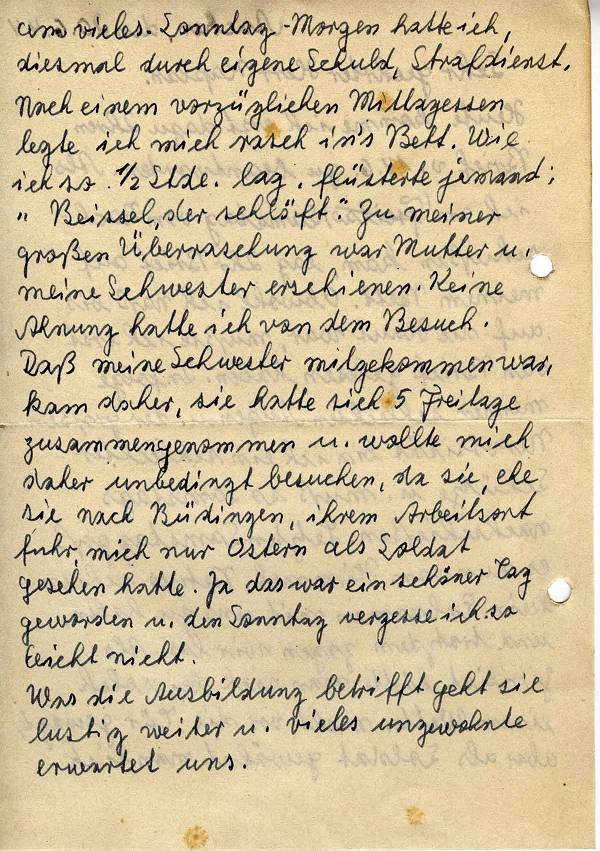 um vieles. Sonntag-Morgen hatte ich,
diesmal durch eigene Schuld, Strafdienst.
Nach einem vorzüglichen Mittagessen
legte ich mich rasch in's Bett. Wie
ich so 1/2 Stde. lag, flüsterte jemand;
" Beissel, der schläft". Zu meiner
großen Überraschung war Mutter u.
meine Schwester erschienen. Keine
Ahnung hatte ich von dem Besuch.
Daß meine Schwester mitgekommen war,
kam daher, sie hatte sich 5 Freitage
zusammengenommen u. wollte mich
daher unbedingt besuchen, da sie, ehe
sie nach Büdingen, ihrem Arbeitsort
fuhr, mich nur Ostern als Soldat
gesehen hatte. Ja das war ein schöner Tag
geworden u. den Sonntag vergesse ich so
leicht nicht.
Was die Ausbildung betrifft geht sie
lustig weiter u. vieles ungewohnte
erwartet uns.